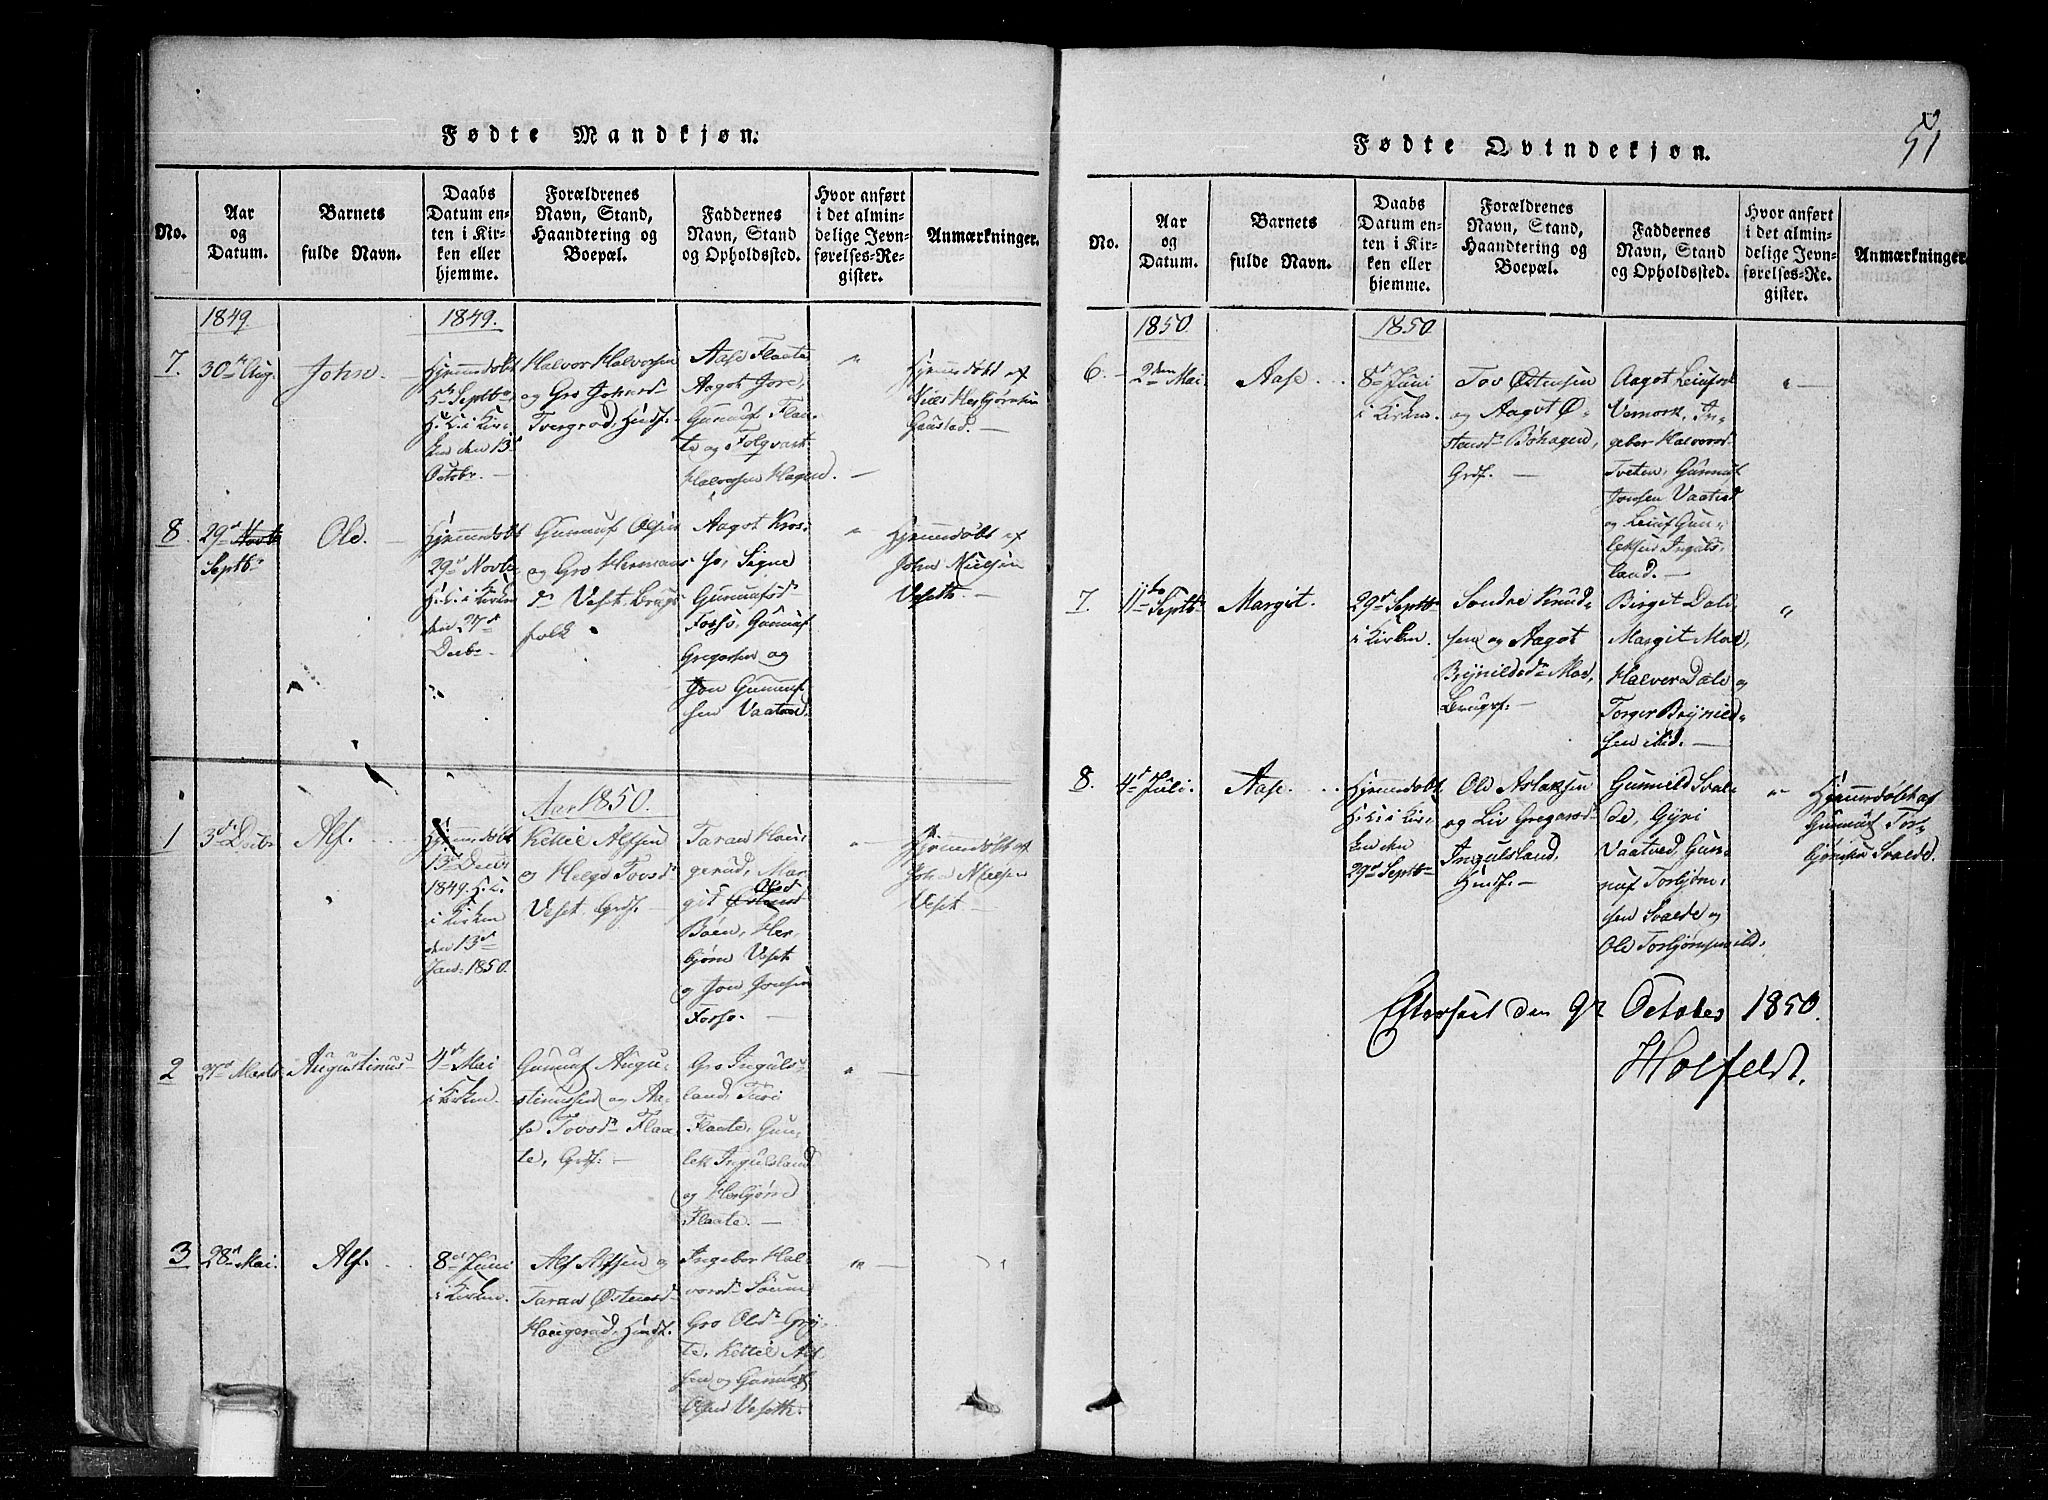 Fødte Mandkjøn.
No.
Aar
og
Datum.
Barnets
fulde Navn.
Daabs
Datum en-
ten i Kir-
ken eller
hjemme.
Forældrenes
Navn, Stand,
Haandtering og
Boepæl.
Faddernes
Navn, Stand
og Opholdssted.
Hvor anført
i det almin-
delige Jevn-
førelses-Re-
gister.
Anmærkninger.
1849.
1849.
7.
30te Aug.
John
Hjemmedøbt
5te Septbr
H. K. i Kir-
ken den 13de
Octobr.
Halvor Halvorsen
og Gro Johnsd
Tvergrod, Hudsf.
Aase Flaate
Aagot Jore,
Gunnuf Flaa-
te og Folqvart
Halvorsen Hagen.
"
Hjemmedøbt af
Niels Herbjørnsen
Gaustad.
8.
29de Novb
Septb
Ole.
Hjemmedøbt
29de Novbr
H. K. i Kirken
den 27de
Decbr.
Gunnuf Olsen
og Gro Hermans-
dr Veset, Brugs-
folk
Aagot Kros-
so, Signe
Gunnufsd
Forso, Gunnuf
Gregarsen og
Jon Gunnuf-
sen Vaatved.
"
Hjemmedøbt af
John Nielsen
Veseth.
Aar 1850.
1
3de Decbr
Alf.
Hjemmedøbt
13de Decbr
1849. H. K.
i Kirken
den 13de
Jan: 1850.
Kettil Alfsen
og Helge Tovsdr
Veset, Grdf.
Taran Hau-
gerud, Mar-
git Østensd Olsd
Bøen, Her-
bjørn Veset
og Jon Jonsen
Forso.
"
Hjemmedøbt af
John Nielsen
Veset
2
27de Marts
Augustinus
4de Mai
i Kirken.
Gunnuf Augu-
stinussen og Aa-
se Tovsdr Flaa-
te, Grdf.
Gro Inguls-
land, Turi
Flaate, Gun-
lek Ingulsland
og Herbjørn
Flaate.
"
3
28de Mai.
Alf.
8de Juni
i Kirken.
Alf Alfsen og
Taran Østensd
Haugerud, Hudsf.
Ingebor Hal-
vorsdr Søuum
Gro Olsdr Grø-
te, Kettil Alf-
sen og Gunnuf
Olsen Veseth.
"
Fødte Qvindekjøn.
51
No.
Aar
og
Datum.
Barnets
fulde Navn.
Daabs
Datum en-
ten i Kir-
ken eller
hjemme.
Forældrenes
Navn, Stand,
Haandtering og
Boepæl.
Faddernes
Navn, Stand
og Opholdssted.
Hvor anført
i det almin-
delige Jevn-
førelses-Re-
gister.
Anmærkninger.
1850.
1850
6.
2den Mai
Aase
8de Juni
i Kirken.
Tov Østensen
og Aagot Ø-
stensdr Bøhagen,
Grdf.
Aagot Leiufsd
Vemork, In-
gebor Halvorsd
Tveten, Gunnuf
Jonsen Vaatved
og Leiuf Gun-
leksen Inguls-
land.
"
7.
11te Septb
Margit.
29de Septbr
i Kirken.
Sondre Knud-
sen og Aagot
Brynildsdr Moe,
Brugsf.
Birgit Dale
Margit Moe,
Halver Dale og
Torger Brynild-
sen ibid.
"
8.
4de Juli.
Aase.
Hjemmedøbt
H. K. i Kir-
ken den
29de Septbr
Ole Aslaksen
og Liv Gregarsd
Ingulsland,
Hudsf.
Gunnild Svai-
de, Gyri
Vaatved, Gun-
nuf Torbjørn-
sen Svalde og
Ole Torbjørnsen ild.
"
Hjemmedøbt af
Gunnuf Tor-
bjørnsen Svalde.
Efterseet den 9de October 1850.
Holfeldt.